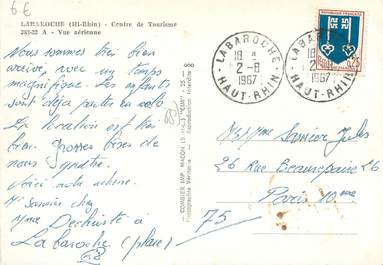 6€
LABAROCHE (Ht-Rhin) - Centre de Tourisme
285-32 A - Vue aérienne
Nous sommes très bien
arrivé, avec un temps
magnifique. Les enfants
sont déjà partis en vélo.
La location est très
bien. Grosses bises de
nous quatre.
Voici notre adresse.
Mr Sannier chez
Mme Dechriste à
Labaroche (place)
68
COMBIER IMP. MACON
Photographie Véritable - Reproduction interdite
LABAROCHE
18 H
2-8
1967
HAUT-RHIN
LABAROCHE
18 H
2-8
1967
HAUT-RHIN
REPUBLIQUE FRANCAISE
0,25
Mr et Mme Sannier Jules
26 Rue Beaurepaire 26
Paris 10ème
75